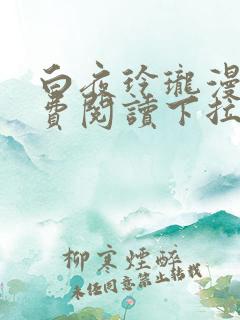 白夜玲瓏漫
費閱讀下拉
柳寒煙醉
未经同意禁止转载